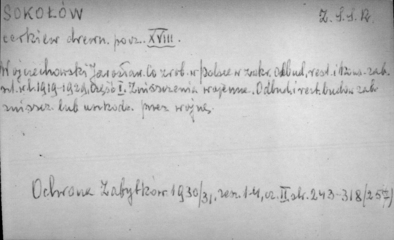 SOKOŁÓW Z.S.S.R.
cerkiew drewn. pocz. XVIII.
Wojciechowski Jarosław. Co zrob. w Polsce w zakr. odbud., rest. i konserw. zab.
w l. 1919-1929. Część I. Zniszczenia wojenne. Odbud. i rest. budow. zab.
zniszcz. lub uszkodz. przez wojnę.
Ochrona Zabytków. 1930/31, zesz. 1-4, cz. II, str. 243-318 /257/